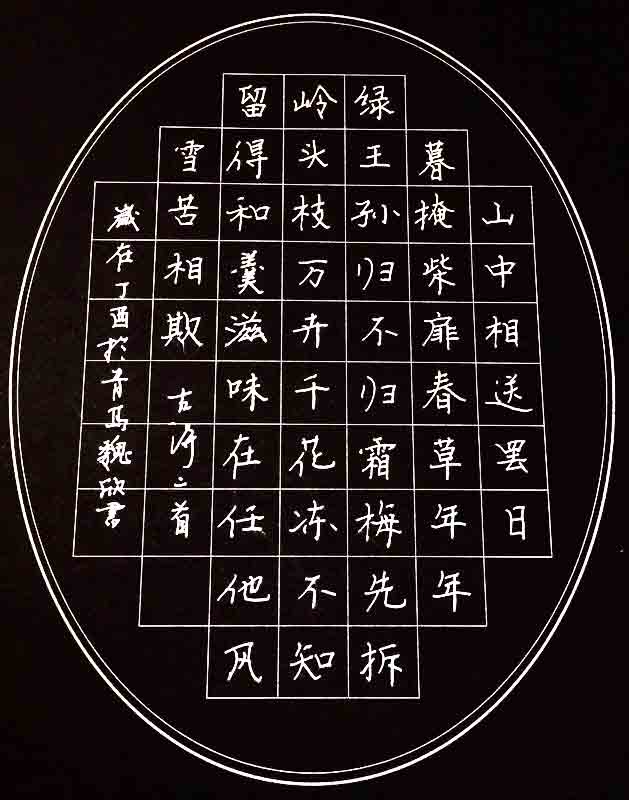 山中相送罢日
暮掩柴扉春草年年
绿王孙归不归霜梅先拆
岭头枝万卉千花冻不知
留得和羹滋味在任他风
雪苦相欺 古诗二首
歲在丁酉於青島魏欣書